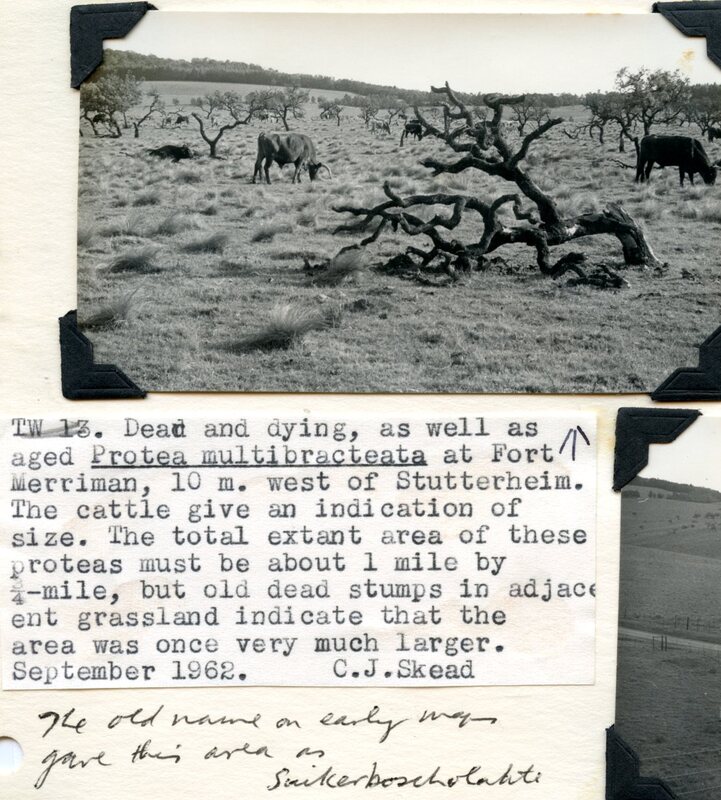 TW 13. Dead and dying, as well as
aged Protea multibracteata at Fort
Merriman, 10 m. west of Stutterheim.
The cattle give an indication of
size. The total extant area of these
proteas must be about 1 mile by
¾-mile, but old dead stumps in adjace
ent grassland indicate that the
area was once very much larger.
September 1962. C.J.Skead
The old name on early maps
gave this area as